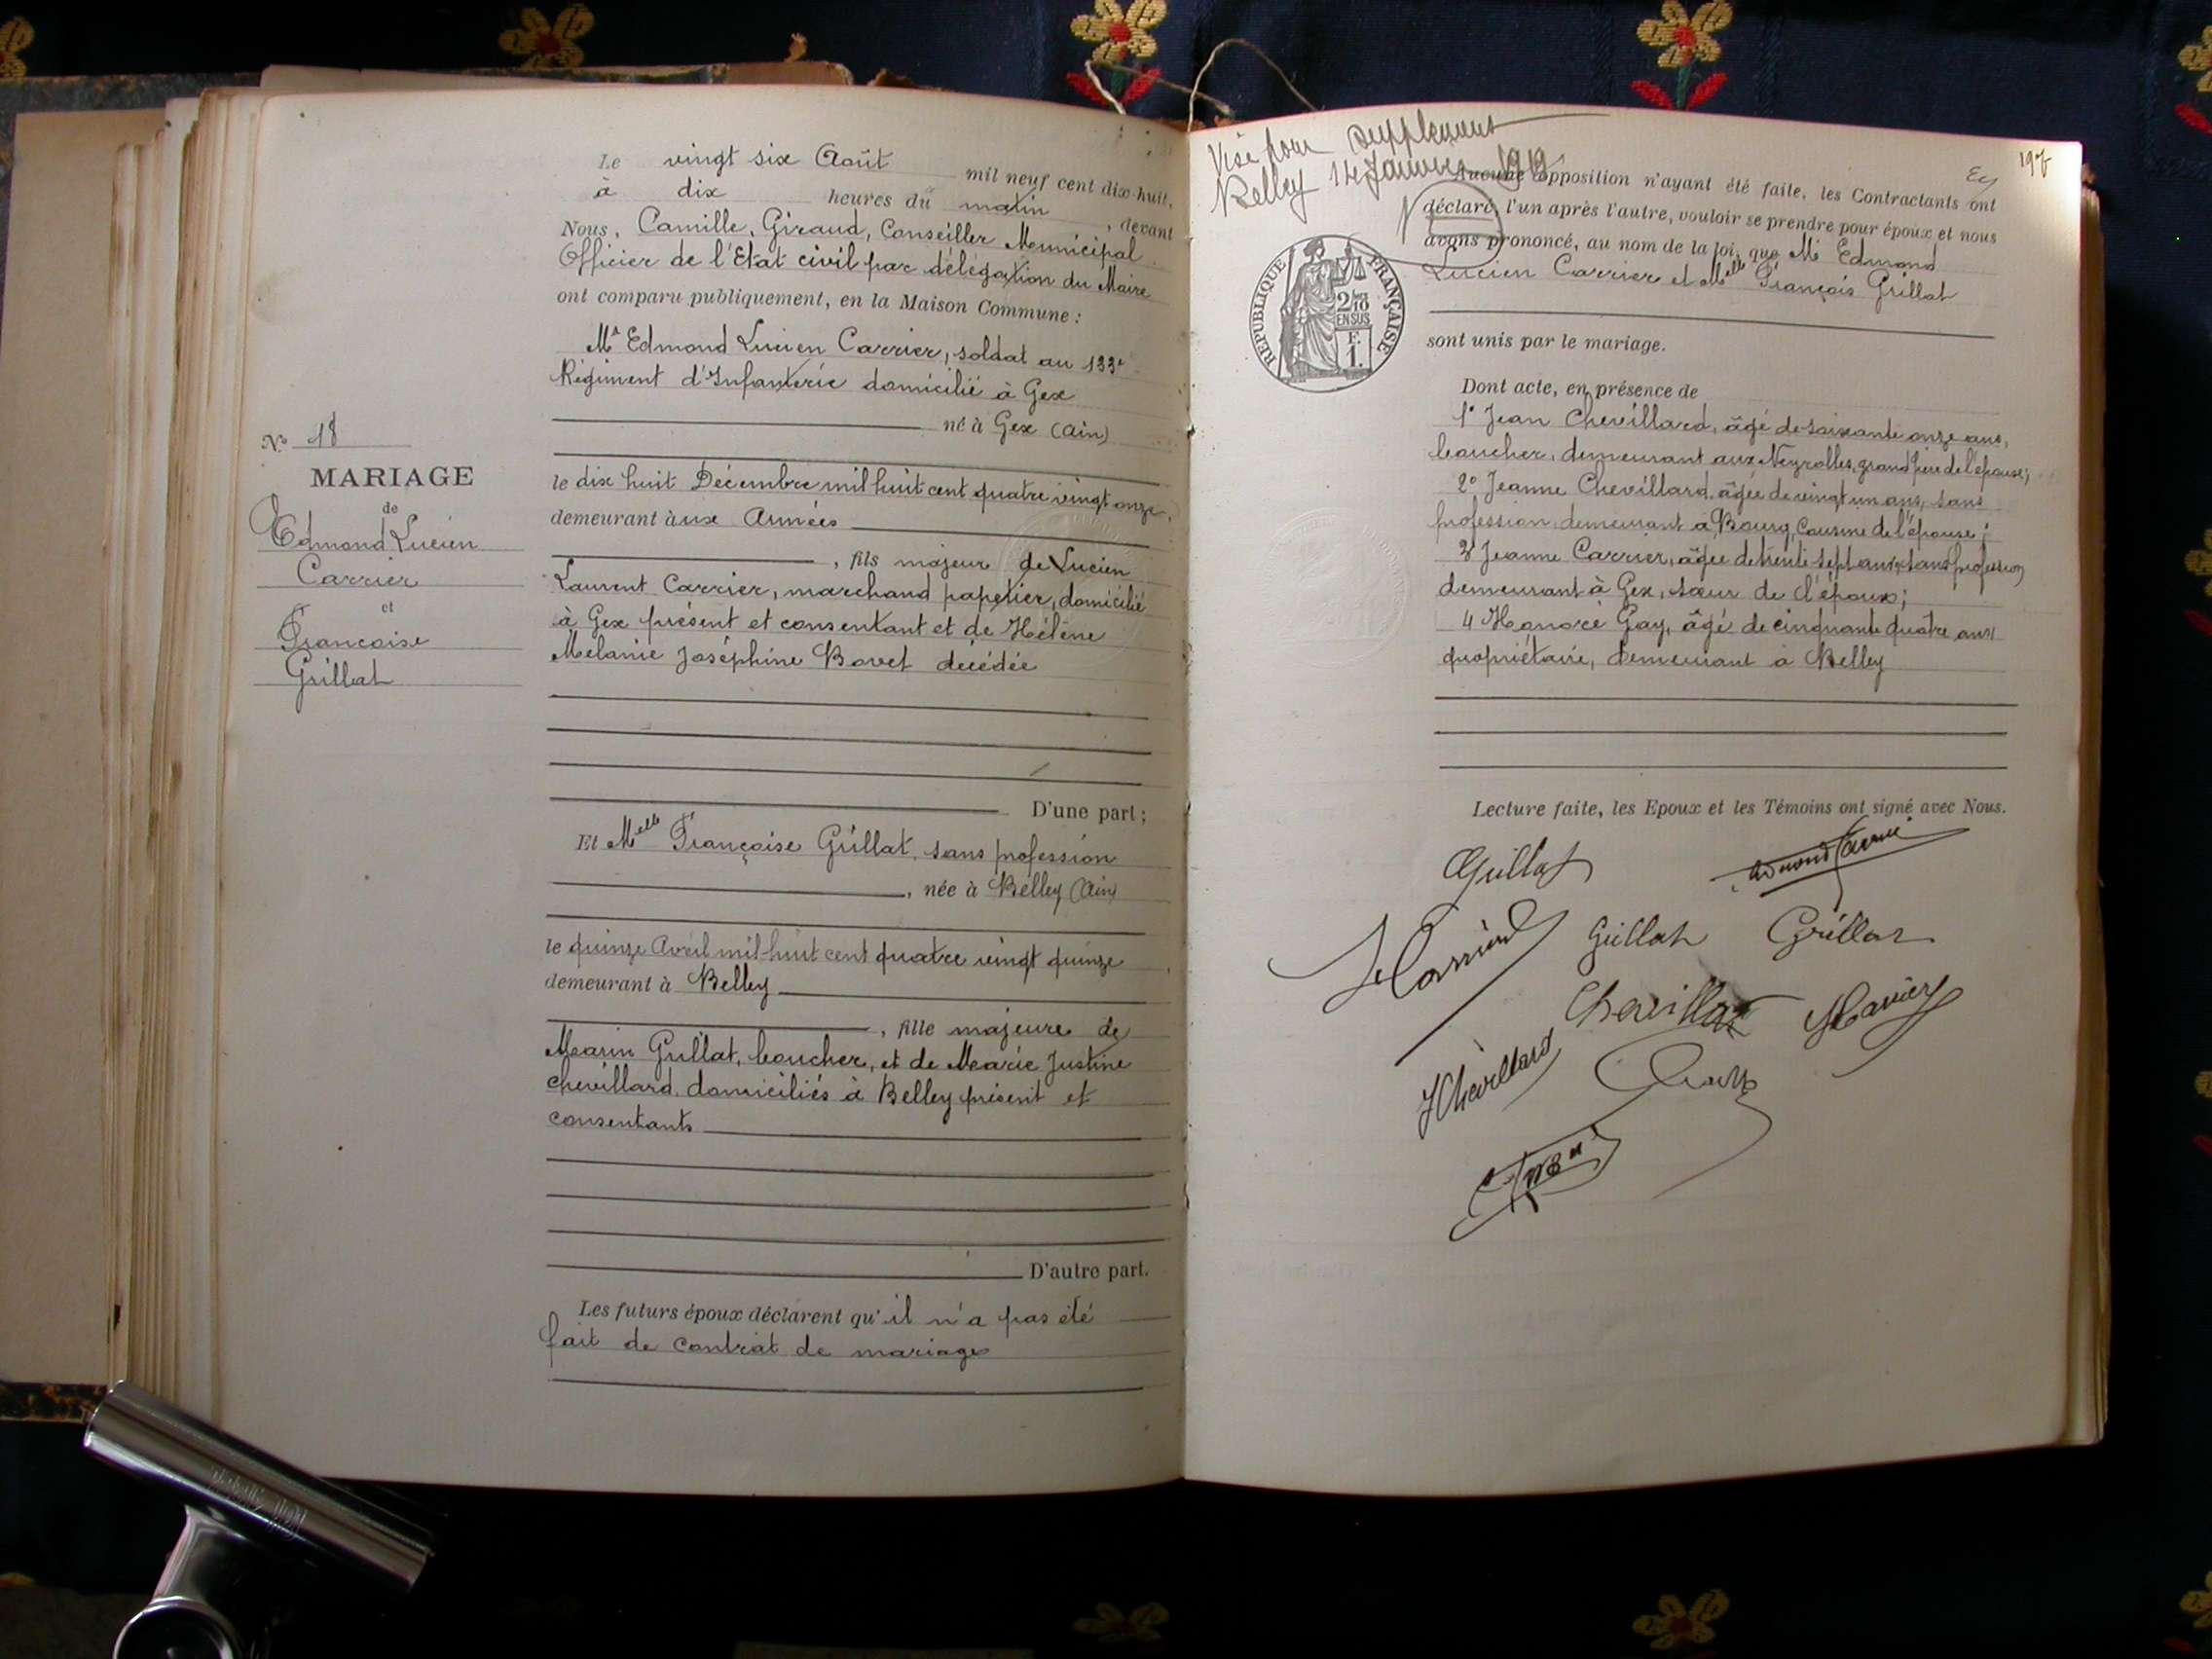 Le vingt six Août mil neuf cent dix-huit,
à dix heures du matin, devant
Nous, Camille, Giraud, Conseiller Municipal
Officier de l'Etat civil par délégation du Maire
ont comparu publiquement, en la Maison Commune :
Mr Edmond Lucien Carrier, soldat au 133e
Régiment d'Infanterie domicilié à Gex
né à Gex (Ain)
le dix huit Décembre mil huit cent quatre vingt onze,
demeurant aux Armées
, fils majeur de Lucien
Laurent Carrier, marchand papetier, domicilié
à Gex présent et consentant et de Hélène
Mélanie Joséphine Bovet décédée
D'une part ;
Et Melle Françoise Grillat, sans profession
, née à Belley (Ain)
le quinze Avril mil huit cent quatre vingt quinze
demeurant à Belley
, fille majeure de
Marin Grillat, boucher, et de Marie Justine
Chevillard, domiciliés à Belley présent et
consentants
D'autre part.
Les futurs époux déclarent qu'il n'a pas été
fait de contrat de mariage
No 18
MARIAGE
de
Edmond Lucien
Carrier
et
Françoise
Grillat
Visé pour supplément
Belley 14 Janvier 1919
197
Aucune opposition n'ayant été faite, les Contractants ont
déclaré, l'un après l'autre, vouloir se prendre pour époux et nous
avons prononcé, au nom de la loi, que Mr Edmond
Lucien Carrier et Melle François Grillat
sont unis par le mariage.
REPUBLIQUE FRANÇAISE
2/10
EN SUS
F.
1.
Dont acte, en présence de
1° Jean Chevillard, âgé de soixante onze ans,
boucher, demeurant aux Neyrolles, grand père de l'épouse;
2° Jeanne Chevillard, âgée de vingt un ans, sans
profession, demeurant à Bourg, Cousine de l'épouse;
3° Jeanne Carrier, âgée de trente sept ans, sans profession
demeurant à Gex, sœur de l'époux;
4 Honoré Gay, âgé de cinquante quatre ans
propriétaire, demeurant à Belley
Lecture faite, les Epoux et les Témoins ont signé avec Nous.
Grillat
Edmond Carrier
Grillat
Grillat
Chevillard
JChevillard